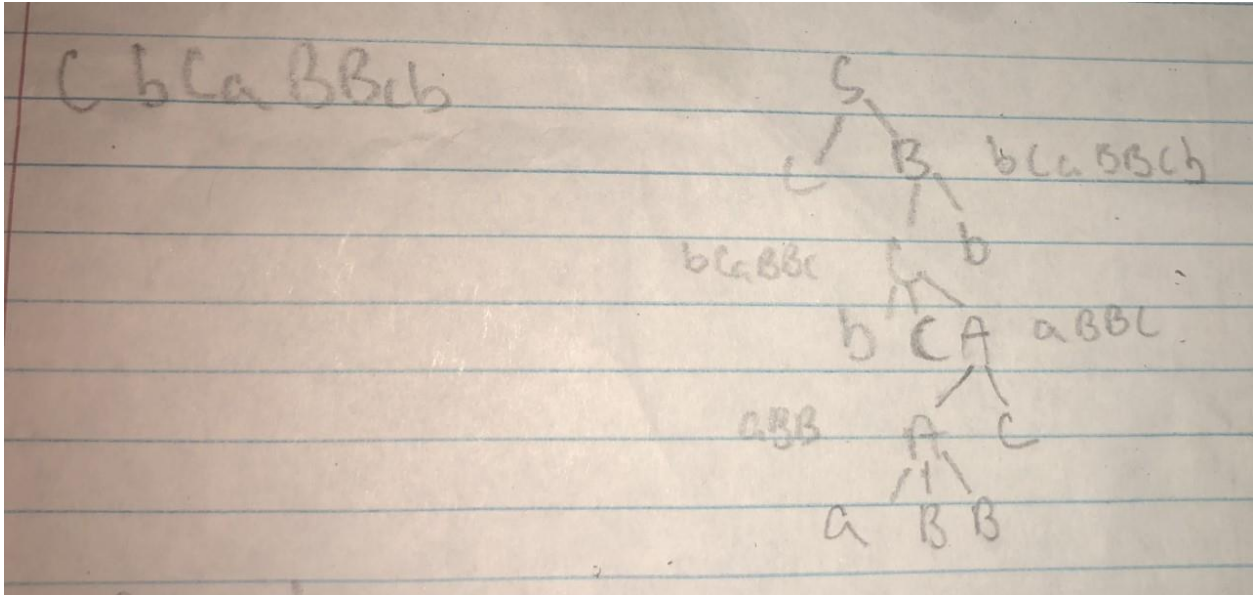 C b C a B B c b
S
C B b C a B B C b
b C a B B C C b
b C A a B B C
a B B A C
a B B